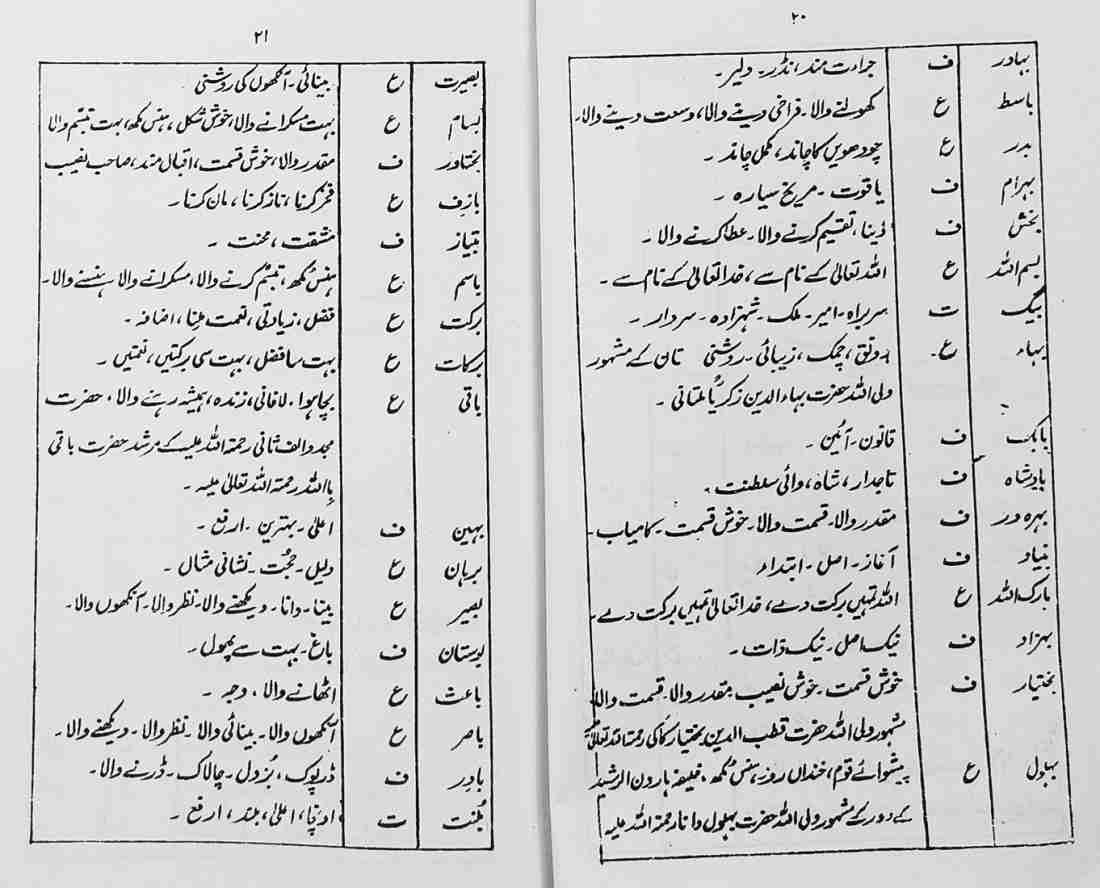 ۲۰
بہادر ف جراءت مند، نڈر۔ دلیر۔
باسط ع کھولنے والا۔ فراخی دینے والا، وسعت دینے والا۔
بدر ع چودھویں کا چاند، مکمل چاند۔
بہرام ف یاقوت۔ مریخ سیارہ۔
بخش ف دینا، تقسیم کرنے والا۔ عطا کرنے والا۔
بسم اللہ ع اللہ تعالیٰ کے نام سے، خدا تعالیٰ کے نام سے۔
بیگ ت سربراہ۔ امیر۔ ملک۔ شہزادہ۔ سردار۔
بہاء ع۔ رونق، چمک، زیبائی۔ روشنی تان کے مشہور
ولی اللہ حضرت بہاء الدین زکریاؒ ملتانی۔
بابک ف قانون۔ آئین۔
بادشاہ ف تاجدار، شاہ، وائی سلطنت۔
بہرہ ور ف مقدر والا۔ قسمت والا۔ خوش قسمت۔ کامیاب۔
بنیاد ف آغاز۔ اصل۔ ابتداء
بارک اللہ ع اللہ تمہیں برکت دے، خدا تعالیٰ تمہیں برکت دے۔
بہزاد ف نیک اصل۔ نیک ذات۔
بختیار ف خوش قسمت۔ خوش نصیب۔ مقدر والا۔ قسمت والا،
مشہور ولی اللہ حضرت قطب الدین بختیار کاکی رحمۃ اللہ تعالیٰ
بہلول ع پیشوائے قوم، خنداں روز، ہنس مکھ، خلیفہ ہارون الرشید
کے دور کے مشہور ولی اللہ حضرت بہلول دانا رحمۃ اللہ علیہ
۲۱
بصیرت ع بینائی۔ آنکھوں کی روشنی
بسام ع بہت مسکرانے والا، خوش شکل، ہنس مکھ، بہت تبسم والا
بختاور ف مقدر والا، خوش قسمت، اقبال مند، صاحب نصیب
بازف ع فخر کرنا، ناز کرنا، مان کرنا۔
بتیاز ف مشقت، محنت۔
باسم ع ہنس مکھ، تبسم کرنے والا، مسکرانے والا ہنسنے والا۔
برکت ع فضل، زیادتی، نعمت ملنا، اضافہ۔
برکات ع بہت سا فضل، بہت سی برکتیں، نعمتیں۔
باقی ع بچا ہوا۔ لافانی، زندہ، ہمیشہ رہنے والا، حضرت
مجدد الف ثانی رحمۃ اللہ علیہ کے مرشد حضرت باقی
با اللہ رحمۃ اللہ تعالیٰ علیہ۔
بہین ف اعلیٰ۔ بہترین۔ ارفع۔
برہان ع دلیل۔ حجُت۔ نشانی مثال۔
بصیر ع بینا۔ دانا۔ دیکھنے والا۔ نظر والا۔ آنکھوں والا۔
بوستان ف باغ۔ بہت سے پھول۔
باعث ع اٹھانے والا، وجہ۔
باصر ع آنکھوں والا۔ بینائی والا۔ نظر والا۔ دیکھنے والا۔
بادِر ف ڈرپوک، بُزدل۔ چالاک۔ ڈرنے والا۔
بُلنت ت اونچا، اعلیٰ، بلند، ارفع۔